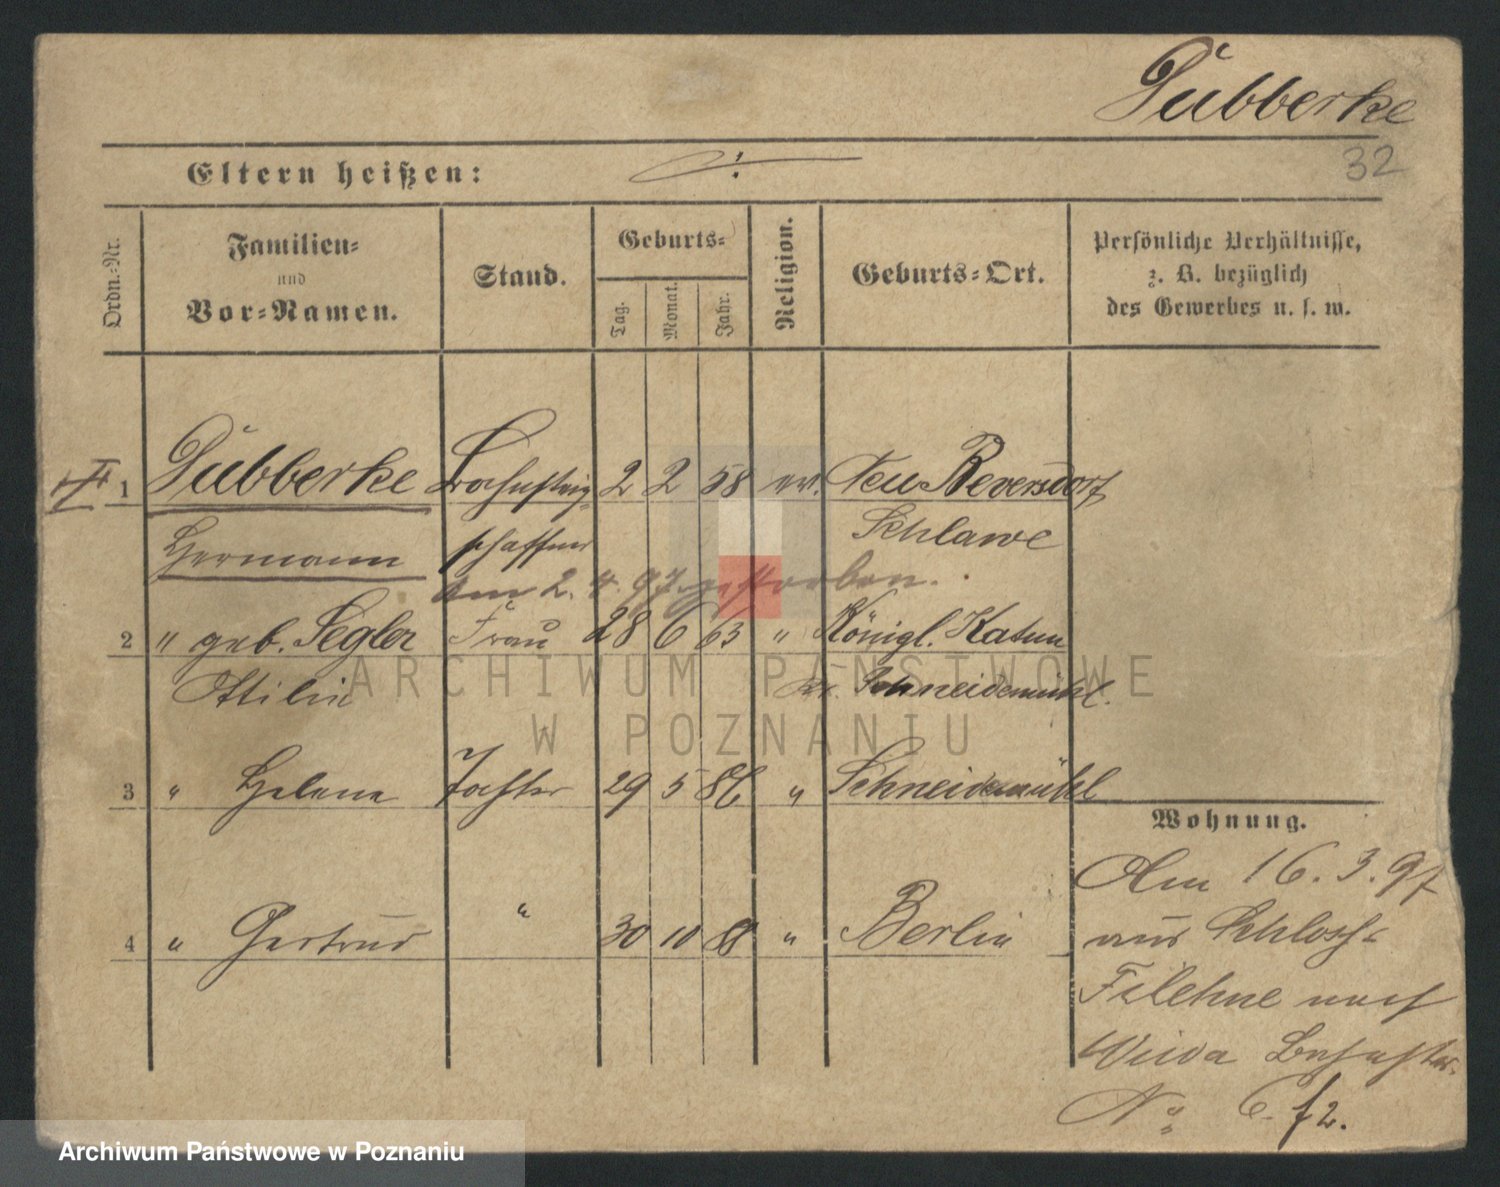 Dubberke
32
Eltern heißen:
Ordn.=Nr.
Familien=
und
Vor=Namen.
Stand.
Geburts=
Tag.
Monat.
Jahr.
Religion.
Geburts=Ort.
Persönliche Verhältnisse,
z. B. bezüglich
des Gewerbes u. s. w.
1 Dubberke 2 2 58 ev. Neu Reversdorf
Hermann schaffner Schlawe
am 2. 4. 97 gestorben.
2 " geb. Segler Frau 28 6 63 " Königl.
Ottilie Kr. Schneidemühl.
3 " Helene Tochter 29 5 86 " Schneidemühl
4 " Gertrud " 30 10 88 " Berlin
Wohnung.
Am 16. 3. 97
aus Schloss=
Filehne nach
Wilda
No. 6
ARCHIWUM PAŃSTWOWE
W POZNANIU
Archiwum Państwowe w Poznaniu